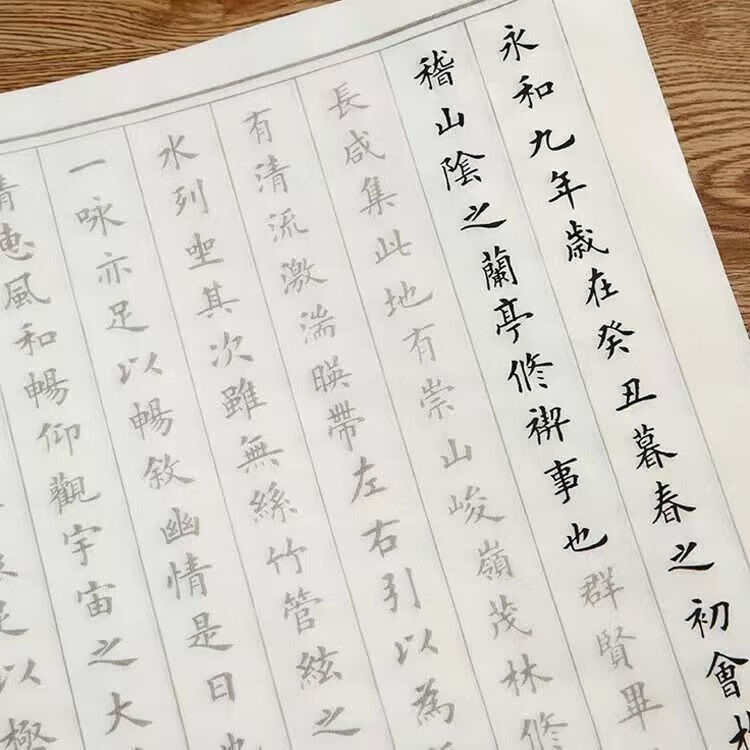 永和九年歲在癸丑暮春之初會
稽山陰之蘭亭修禊事也群賢畢
長咸集此地有崇山峻嶺茂林修
有清流激湍暎帶左右引以為
水列坐其次雖無絲竹管絃之
一咏亦足以暢敘幽情是日也
清惠風和暢仰觀宇宙之大
足以極